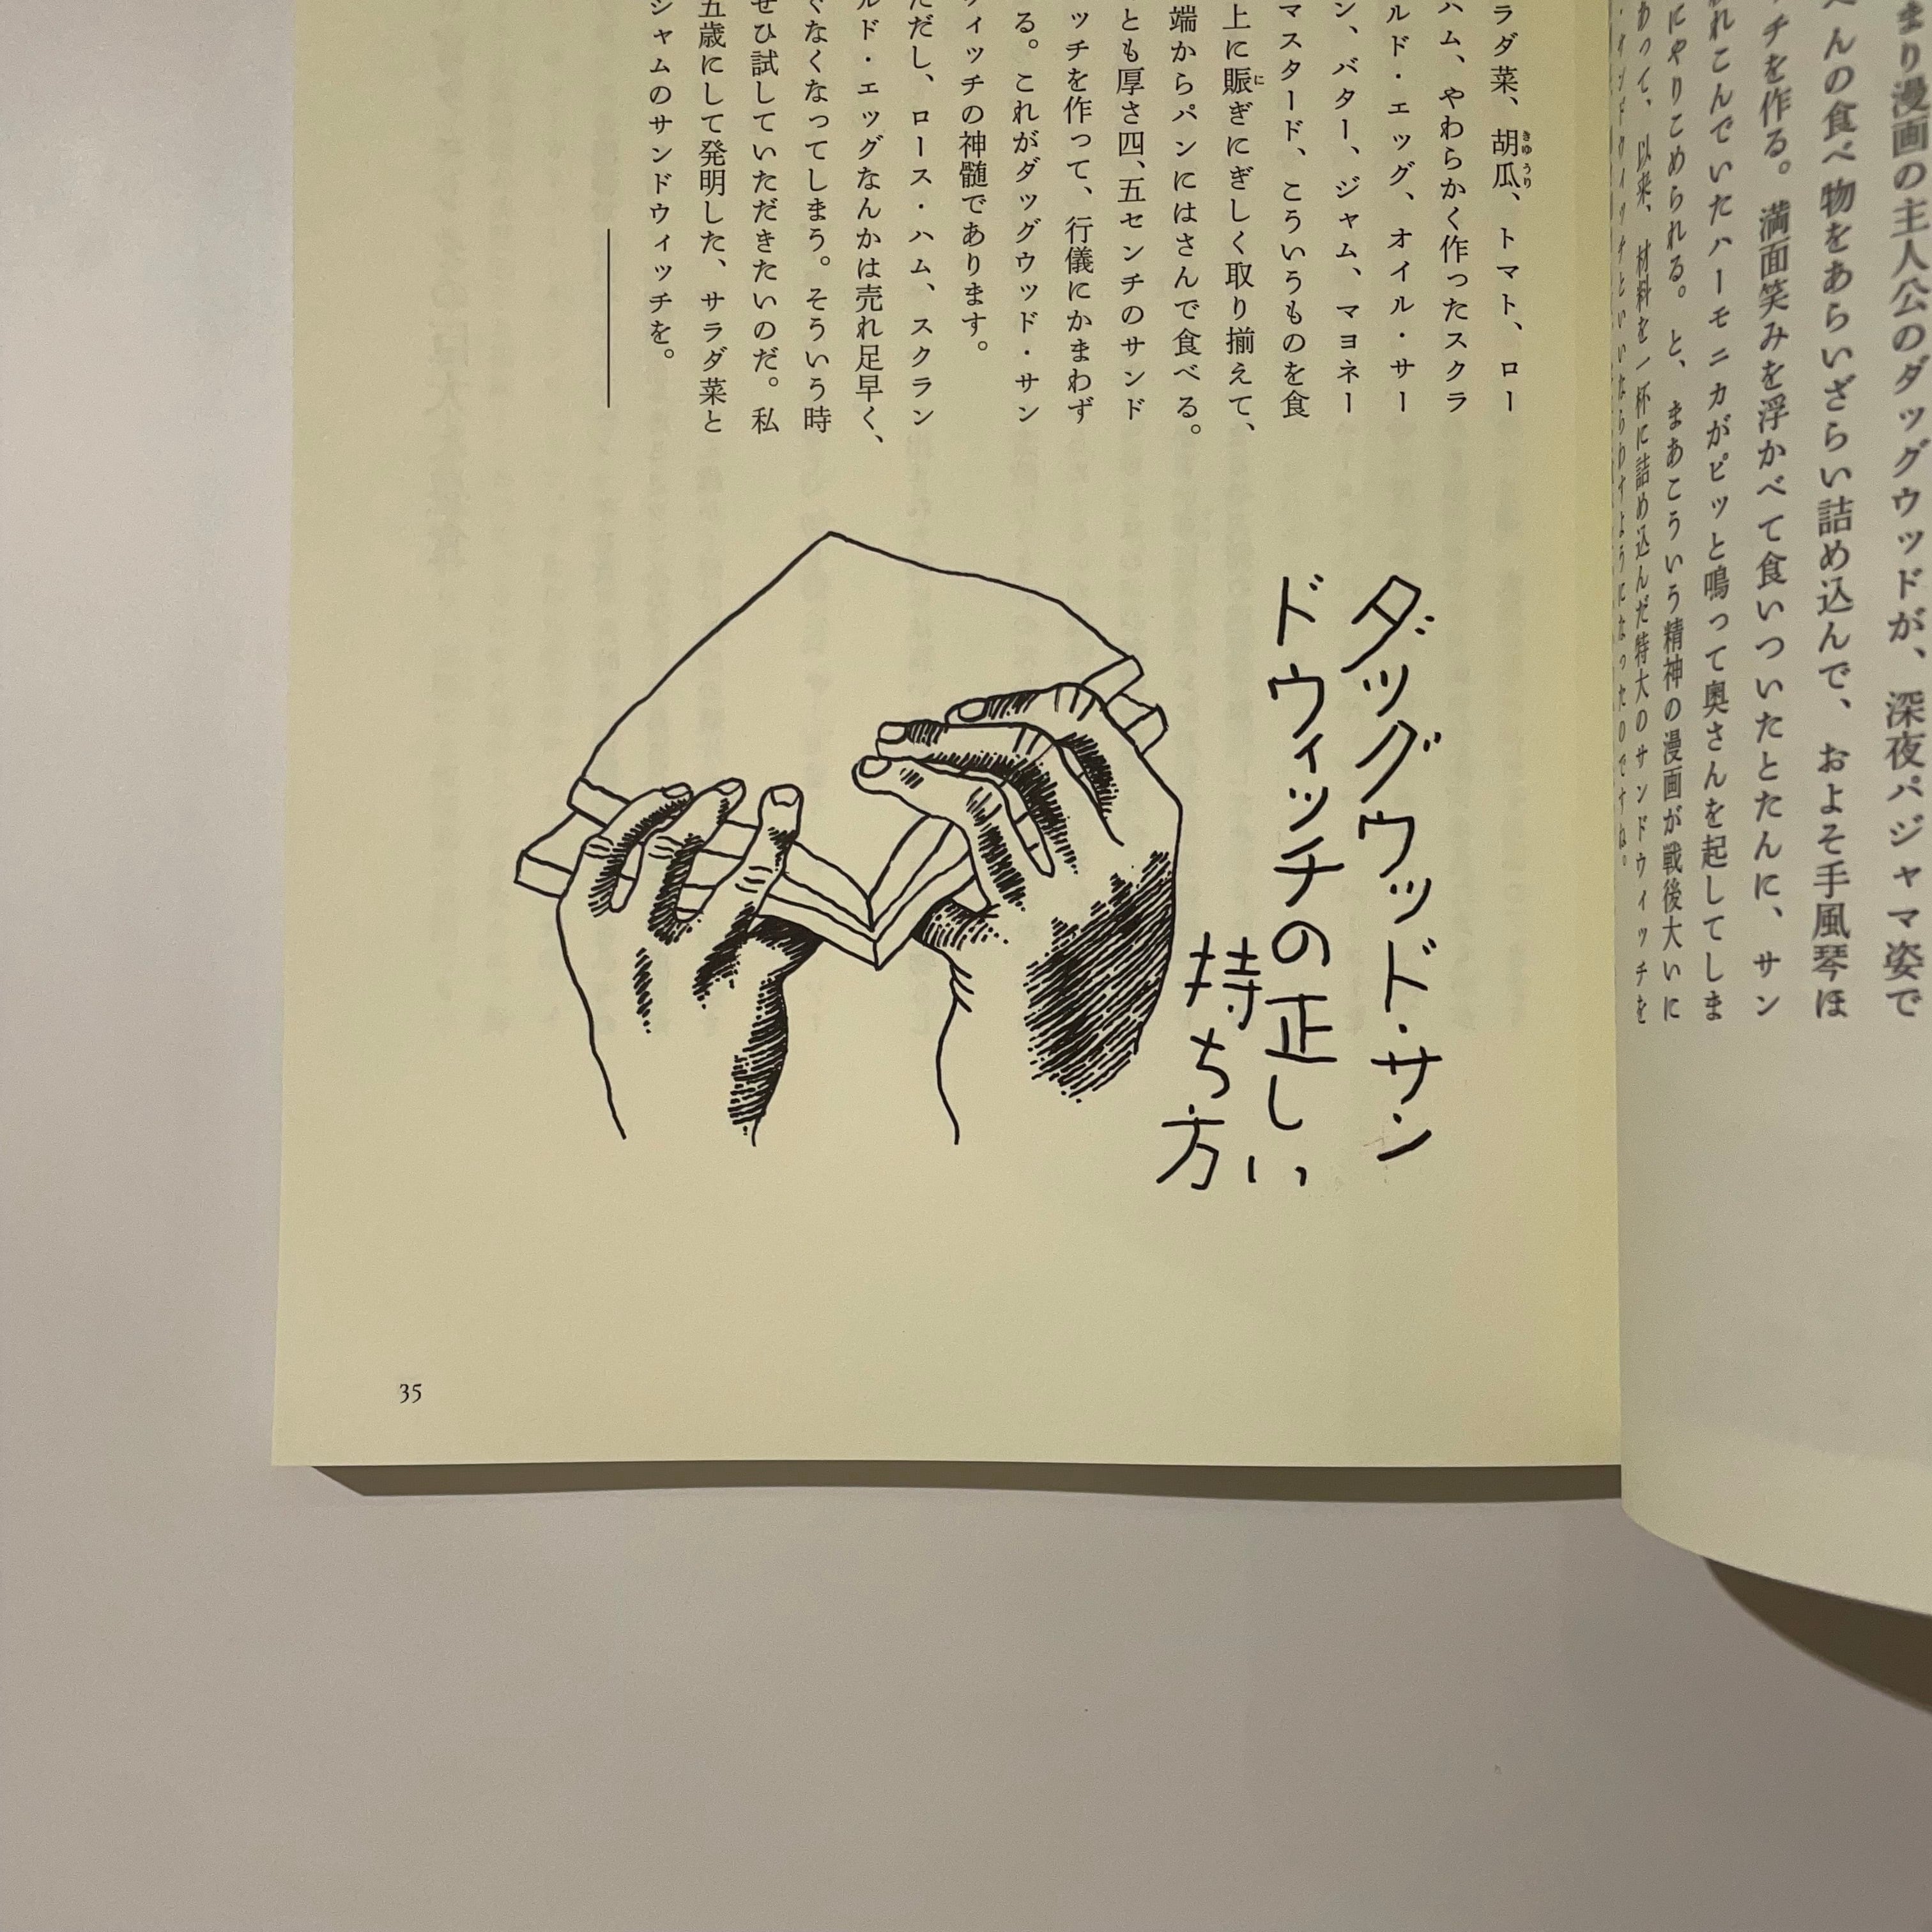 まり漫画の主人公のダッグウッドが、深夜パジャマ姿で
べんの食べ物をあらいざらい詰め込んで、およそ手風琴ほ
チを作る。満面笑みを浮かべて食いついたとたんに、サン
れこんでいたハーモニカがピッと鳴って奥さんを起してしま
にやりこめられる。と、まあこういう精神の漫画が戦後大いに
あって、以来、材料を一杯に詰め込んだ特大のサンドウィッチを
ラダ菜、胡瓜、トマト、ロー
きゅうり
ハム、やわらかく作ったスクラ
ルド・エッグ、オイル・サー
ン、バター、ジャム、マヨネー
マスタード、こういうものを食
上に賑ぎにぎしく取り揃えて、
に
端からパンにはさんで食べる。
とも厚さ四、五センチのサンド
ッチを作って、行儀にかまわず
る。これがダッグウッド・サン
ィッチの神髄であります。
ただし、ロース・ハム、スクラン
ルド・エッグなんかは売れ足早く、
ぐなくなってしまう。そういう時
ぜひ試していただきたいのだ。私
五歳にして発明した、サラダ菜と
ジャムのサンドウィッチを。
ダッグウッド・サン
ドウィッチの正しい
持ち方
35